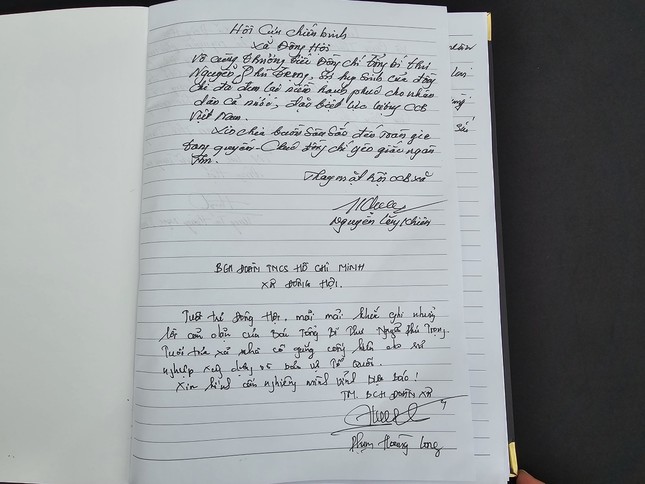 Hội Cựu chiến binh
Xã Đông Hội
Vô cùng thương tiếc Đồng chí Tổng bí thư
Nguyễn Phú Trọng, sự hy sinh của đồng
chí đã đem lại niềm hạnh phúc cho nhân
dân cả nước, đặc biệt lực lượng CCB
Việt Nam.
Xin chia buồn sâu sắc đến toàn gia
tang quyến - Chúc đồng chí yên giấc ngàn
thu.
Thay mặt hội CCB xã
Nguyễn Khiên
BCH ĐOÀN TNCS HỒ CHÍ MINH
XÃ ĐÔNG HỘI.
Tuổi trẻ Đông Hội, mãi mãi khắc ghi những
lời căn dặn của Bác Tổng Bí Thư Nguyễn Phú Trọng.
Tuổi trẻ xã nhà cố gắng cống hiến cho sự
nghiệp xây dựng và bảo vệ Tổ Quốc.
Xin kính cẩn nghiêng mình Bác!
TM. BCH ĐOÀN XÃ
Phạm Hoàng Long